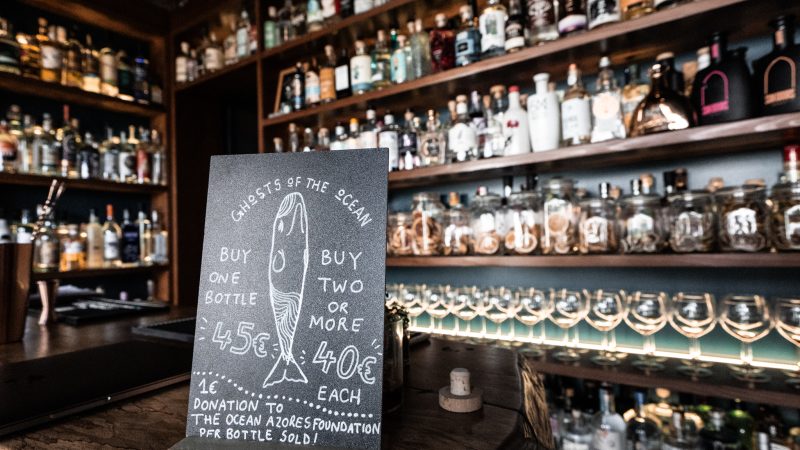 GHOSTS OF THE OCEAN
BUY
ONE
BOTTLE
45€
BUY
TWO
OR
MORE
40€
EACH
1€
DONATION TO
THE OCEAN AZORES FOUNDATION
PER BOTTLE SOLD!